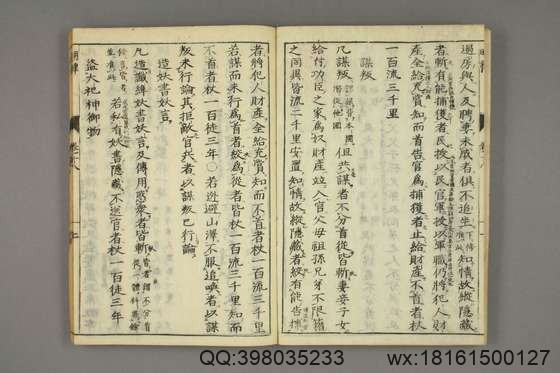 過房與人及聘妻未成者俱不追坐 知情故縱隱藏
者斬有能捕獲者民授以民官軍授以軍職仍將犯人財
產全給充賞知而首告官為捕獲者止給財產不首者杖
一百流三千里
謀叛
凡謀叛 謂謀背本國潛從他國 但共謀者不分首從皆斬妻妾子女
給付功臣之家為奴財產並入官父母祖孫兄弟不限籍
之同異皆流二千里安置知情故縱隱藏者絞有能告捕
者將犯人財產全給充賞知而不首者杖一百流三千里
若謀而未行為首者絞為從者皆杖一百流三千里知而
不首者杖一百徒三年○若逃避山澤不服追喚者以謀
叛未行論其拒敵官兵者以謀叛已行論
造妖書妖言
凡造讖緯妖書妖言及傳用惑眾者皆斬
若私有妖書隱藏不送官者杖一百徒三年
盜大祀神御物
QQ:398035233
wx:18161500127